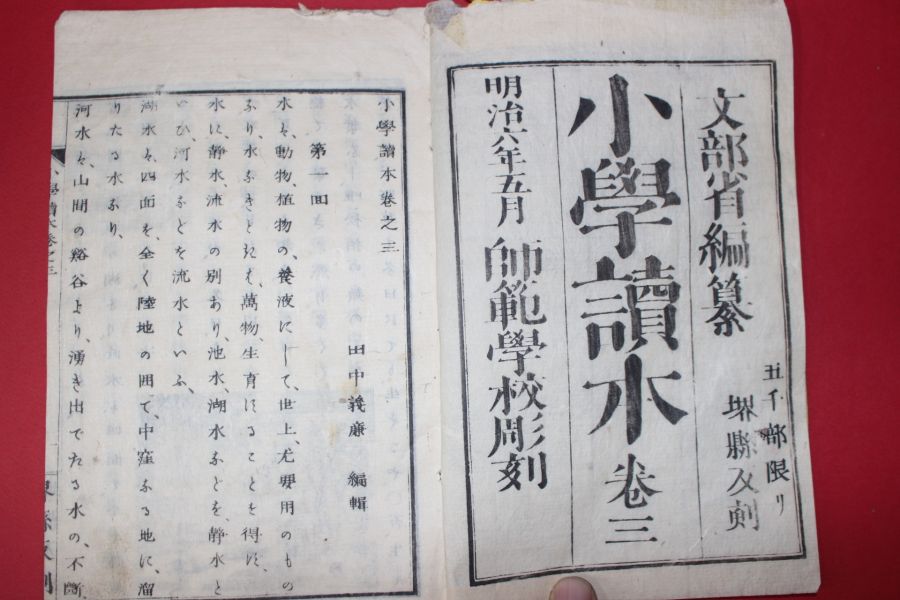 文部省編纂
五千部限リ
堺縣反刻
小學讀本 卷三
明治六年五月 師範學校彫刻
小學讀本卷之三
田中義廉 編輯
第一回
水ハ、動物、植物の、養液にして、世上、尤要用のもの
なり、水なきときは、萬物、生育することを得ず、
水に、静水、流水の別あり、池水、湖水などを、静水と
いひ、河水などを、流水といふ、
湖水ハ、四面を、全く陸地の囲て、中窪なる地に、溜
りたる水なり、
河水ハ、山間の谿谷より、湧き出でたる水の、不断
小學讀本卷之三